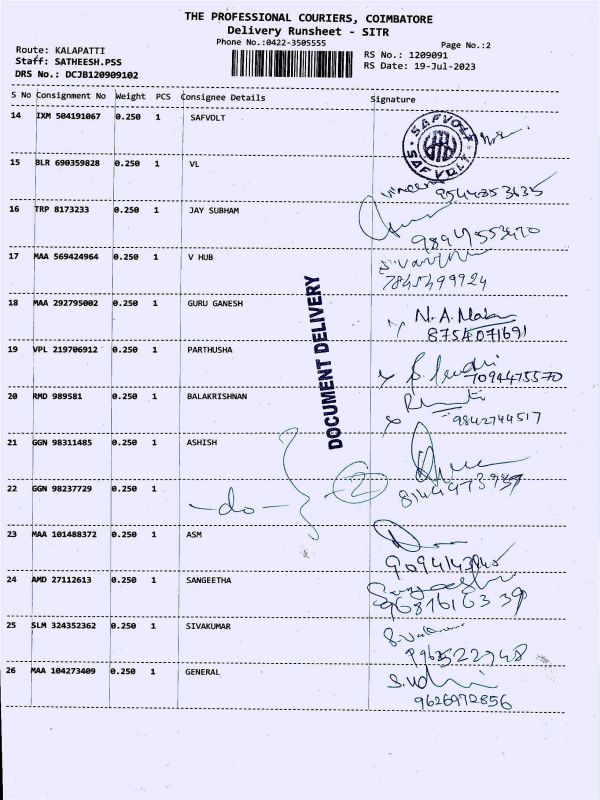 THE PROFESSIONAL COURIERS, COIMBATORE
Delivery Runsheet - SITR
Phone No.:0422-3505555
Page No.:2
Route: KALAPATTI
RS No.: 1209091
Staff: SATHEESH.PSS
RS Date: 19-Jul-2023
DRS No.: DCJB120909102
S No Consignment No Weight PCS Consignee Details Signature
14 IXM 504191067 0.250 1 SAFVOLT
SAFVOLT
SAFVOLT
15 BLR 690359828 0.250 1 VL
16 TRP 8173233 0.250 1 JAY SUBHAM
17 MAA 569424964 0.250 1 V HUB
7845499924
18 MAA 292795002 0.250 1 GURU GANESH
8754071691
DOCUMENT DELIVERY
19 VPL 219706912 0.250 1 PARTHUSHA
7094475570
20 RMD 989581 0.250 1 BALAKRISHNAN
9842744517
21 GGN 98311485 0.250 1 ASHISH
22 GGN 98237729 0.250 1
-do- 2
23 MAA 101488372 0.250 1 ASM
24 AMD 27112613 0.250 1 SANGEETHA
9687616339
25 SLM 324352362 0.250 1 SIVAKUMAR
26 MAA 104273409 0.250 1 GENERAL
9626972856